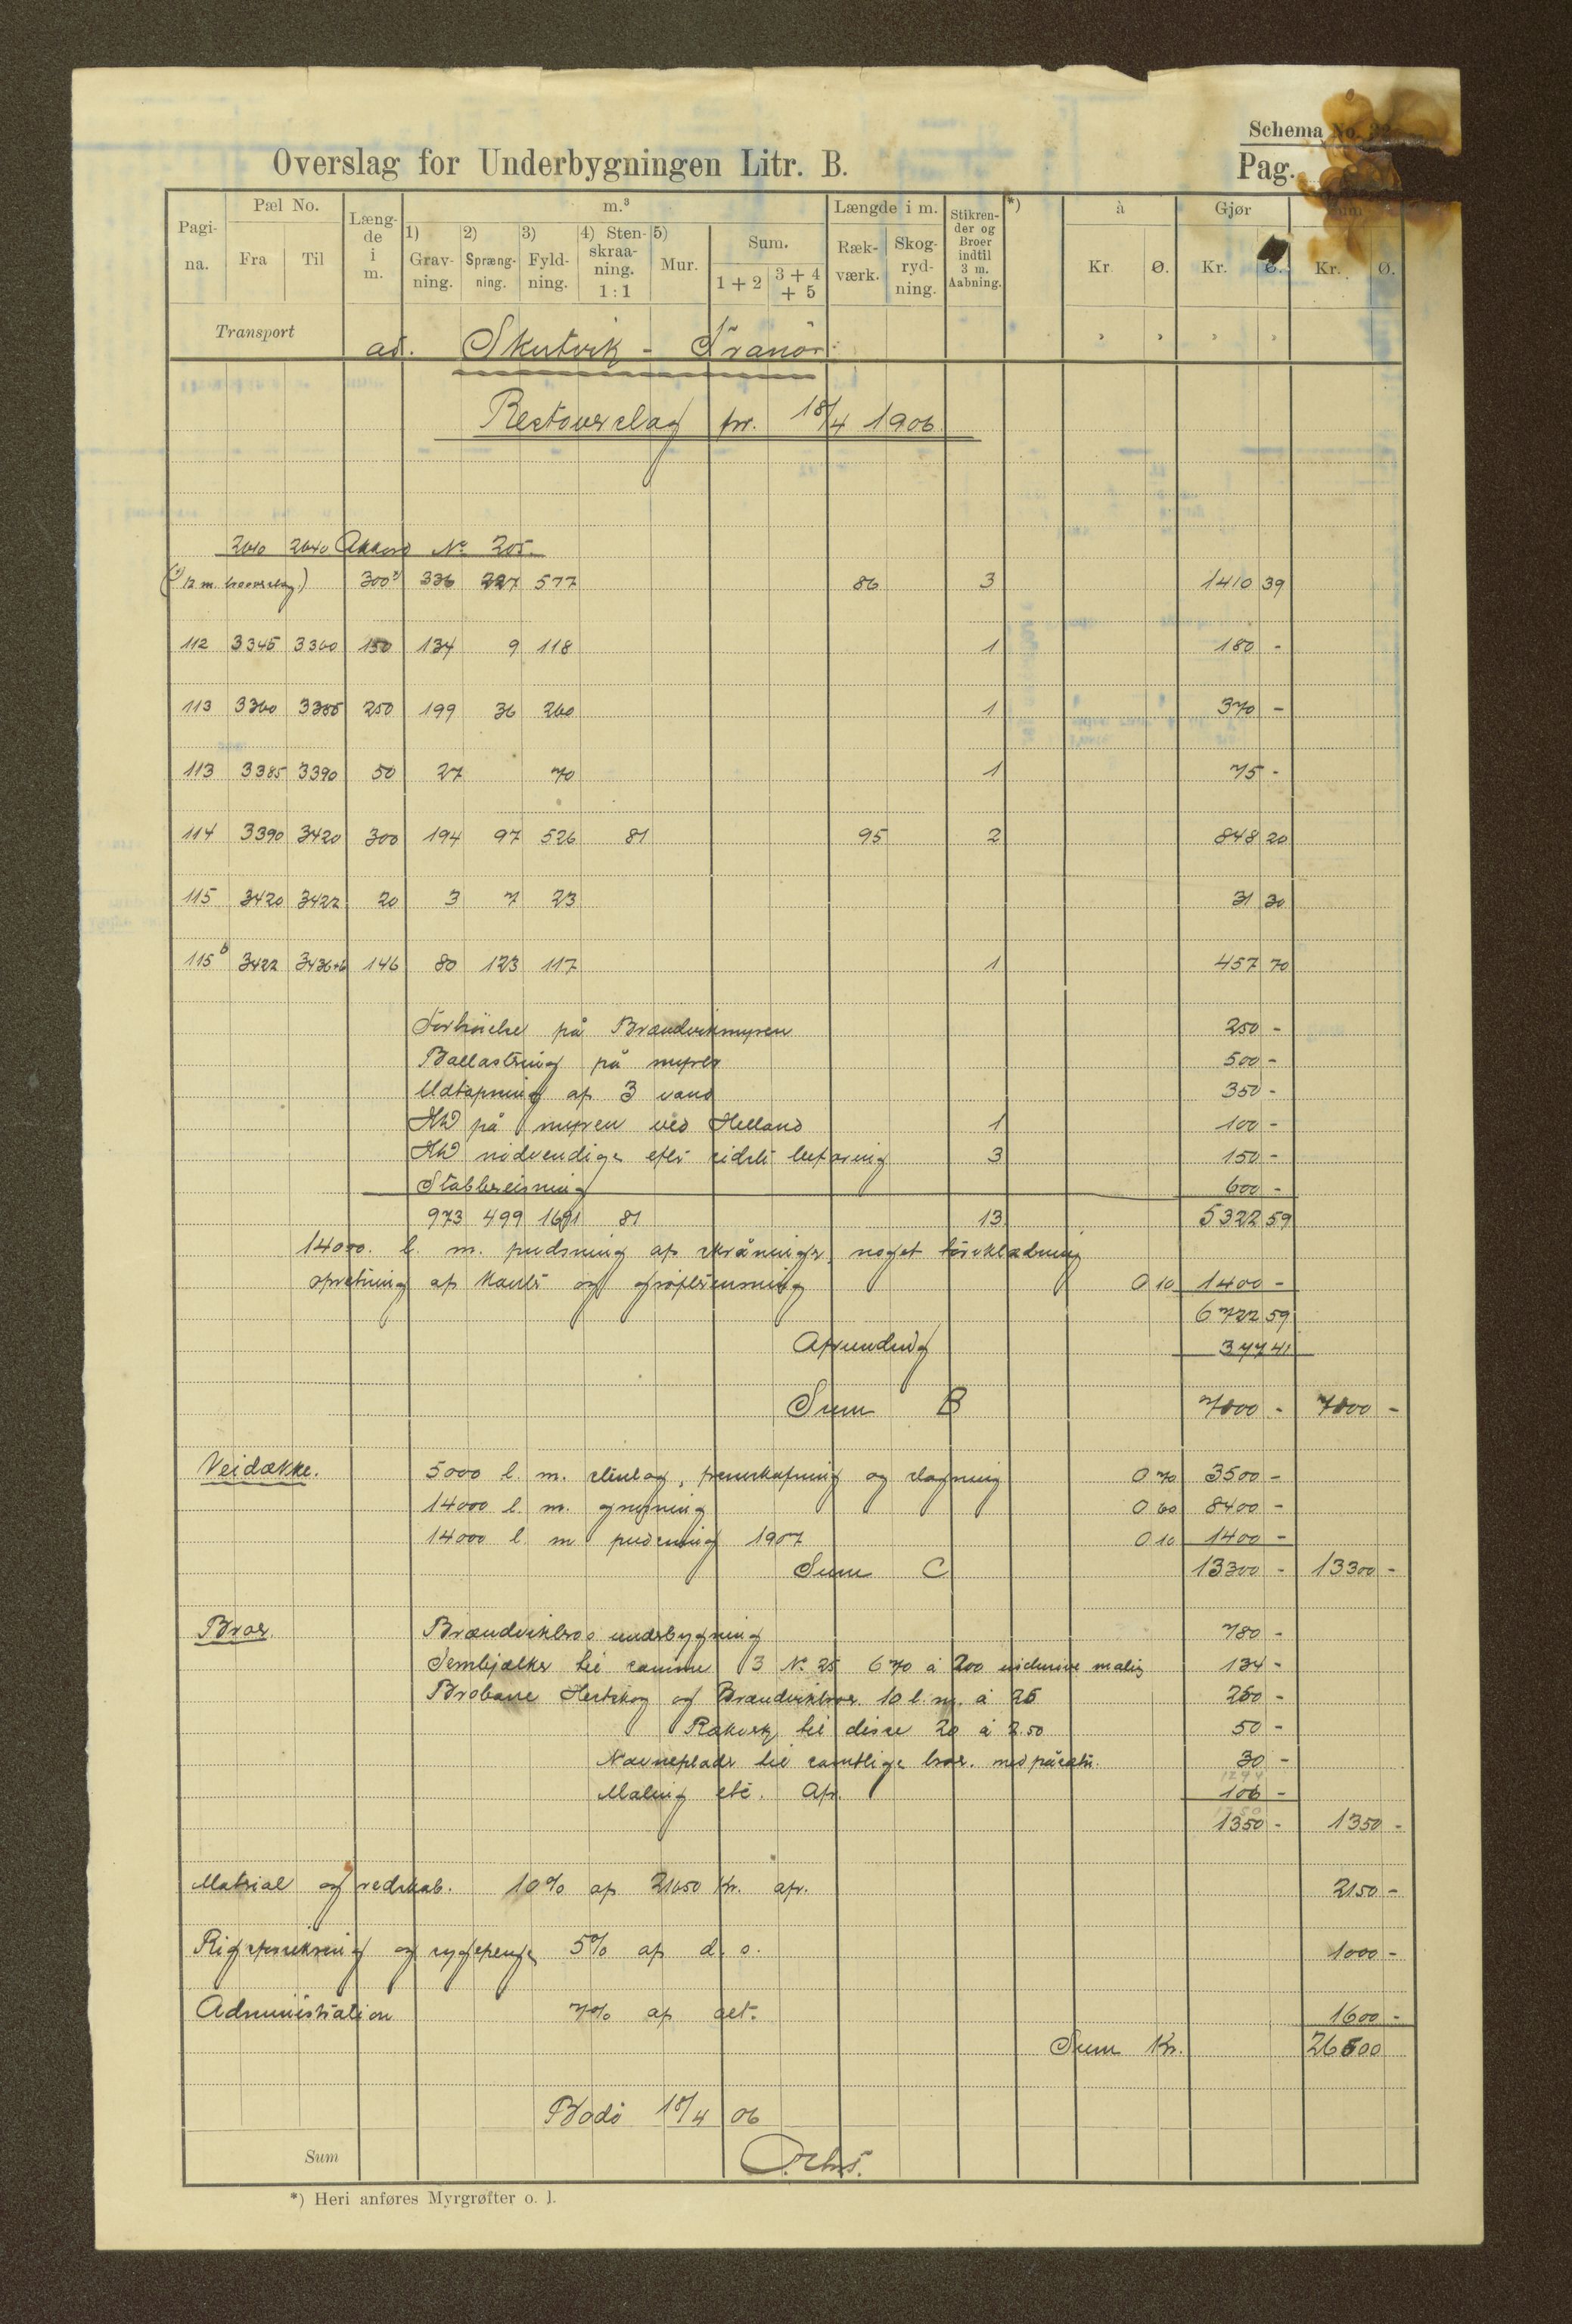 Schema No. 32
Overslag for Underbygningen Litr. B.
Pag.
Pagina. Pæl No. Fra Til Længde i m. m.³ 1) Gravning. 2) Sprængning. 3) Fyldning. 4) Stenskraaning. 1:1 5) Mur. Sum. 1+2 3+4+5 Længde i m. Rækværk. Skogrydning. Stikrender og Broer indtil 3 m. Aabning. *) à Kr. Ø. Gjør Kr. Ø. Sum Kr. Ø.
Transport ad. Skutvik - Tranö
Restoverslag pr. 18/4 1906
2610 2640 Akkord No 205.
12 m. 300 336 227 577 86 3 1410 39
112 3345 3360 150 134 9 118 1 180 -
113 3360 3385 250 199 36 260 1 370 -
113 3385 3390 50 27 70 1 75 -
114 3390 3420 300 194 97 526 81 95 2 848 20
115 3420 3422 20 3 7 23 31 30
115b 3422 3436+6 146 80 123 117 1 457 70
på Brændvikmyren 250 -
Ballastring på myrer 500 -
Udtapning af 3 vand 350 -
på myren ved Helland 1 100 -
nödvendige efter sidste befaring 3 150 -
Stabbereisning 600 -
973 499 1691 81 13 5322 59
14000. l. m. pudsning af skråninger, noget
opretning af kanter og grøfterensning 0 10 1400 -
6722 59
Afrunding 277 41
Sum B 7000 - 7000 -
Veidække. 5000 l. m. stenlag, fremskafning og slagning 0 70 3500 -
14000 l. m. grusning 0 60 8400 -
14000 l m pudsning 1907 0 10 1400 -
Sum C 13300 - 13300 -
Broer. Brændvikbros underbygning 780 -
Jernbjælker til samme 3 No 25 670 à 200 inclusive maling 134 -
Brobane Hestskog og Brændvikbroer 10 l. m. à 25 250 -
Rækværk til disse 20 à 2.50 50 -
Navneplader til samtlige broer. med påsætn. 30 -
1244
Maling etc. Afr. 106 -
1350 - 1350 -
Matrial og redskab. 10% af 21650 Kr. afr. 2150 -
og sygepenge 5% af d. o. 1000 -
Administration 7% af alt. 1600 -
Sum Kr. 26500
Bodö 18/4 06
Sum
*) Heri anføres Myrgrøfter o. l.